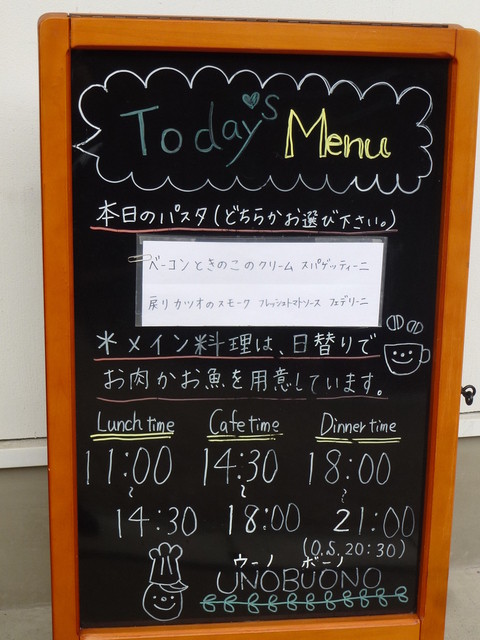 Today's Menu
本日のパスタ(どちらかお選び下さい。)
ベーコンときのこのクリーム スパゲッティーニ
戻りカツオのスモーク フレッシュトマトソース フェデリーニ
*メイン料理は、日替りで
お肉かお魚を用意しています。
Lunch time Cafe time Dinner time
11:00 14:30 18:00
~ ~ ~
14:30 18:00 21:00
(O.S.20:30)
ウーノ ボーノ
UNOBUONO